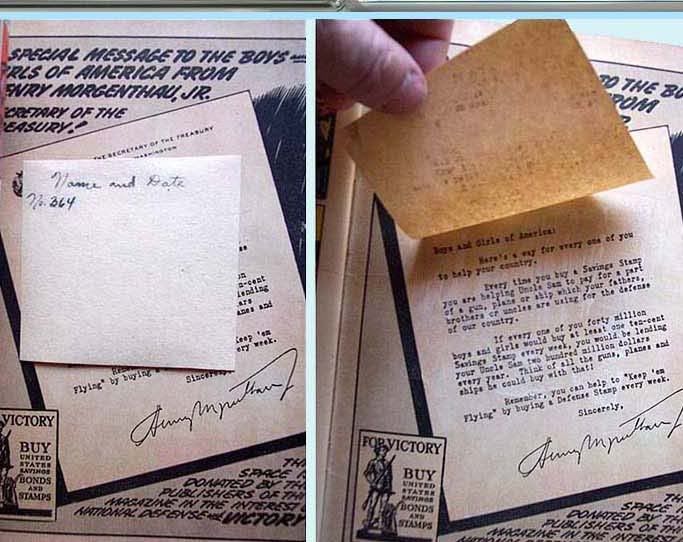 SPECIAL MESSAGE TO THE BOYS
OF AMERICA FROM
MORGENTHAU, JR.
OF THE
THE SECRETARY OF THE TREASURY
WASHINGTON
Name and Date
No. 364
Flying" by buying a
Sincerely
every week.
Henry Morgenthau Jr
VICTORY
BUY
UNITED
STATES
SAVINGS
BONDS
AND
STAMPS
SPACE
DONATED BY THE
PUBLISHERS OF TH
MAGAZINE IN THE INTEREST
NATIONAL DEFENSE VICTORY
TO THE BO
FROM
Boys and Girls of America:
Here's a way for every one of you
to help your country.
Every time you buy a Savings Stamp
you are helping Uncle Sam to pay for a part
of a gun, plane or ship which your fathers,
brothers or uncles are using for the defense
of our country.
If every one of you forty million
boys and girls would buy at least one ten-cent
Savings Stamp every week, you would be lending
your Uncle Sam two hundred million dollars
every year. Think of all the guns, planes and
ships he could buy with that!
Remember, you can help to "Keep 'em
Flying" by buying a Defense Stamp every week.
Sincerely,
Henry Morgenthau Jr
FOR VICTORY
BUY
UNITED
STATES
SAVINGS
BONDS
AND
STAMPS
SPACE
DONATED BY
PUBLISHERS OF
MAGAZINE IN THE INTEREST
NATIONAL DEFENSE